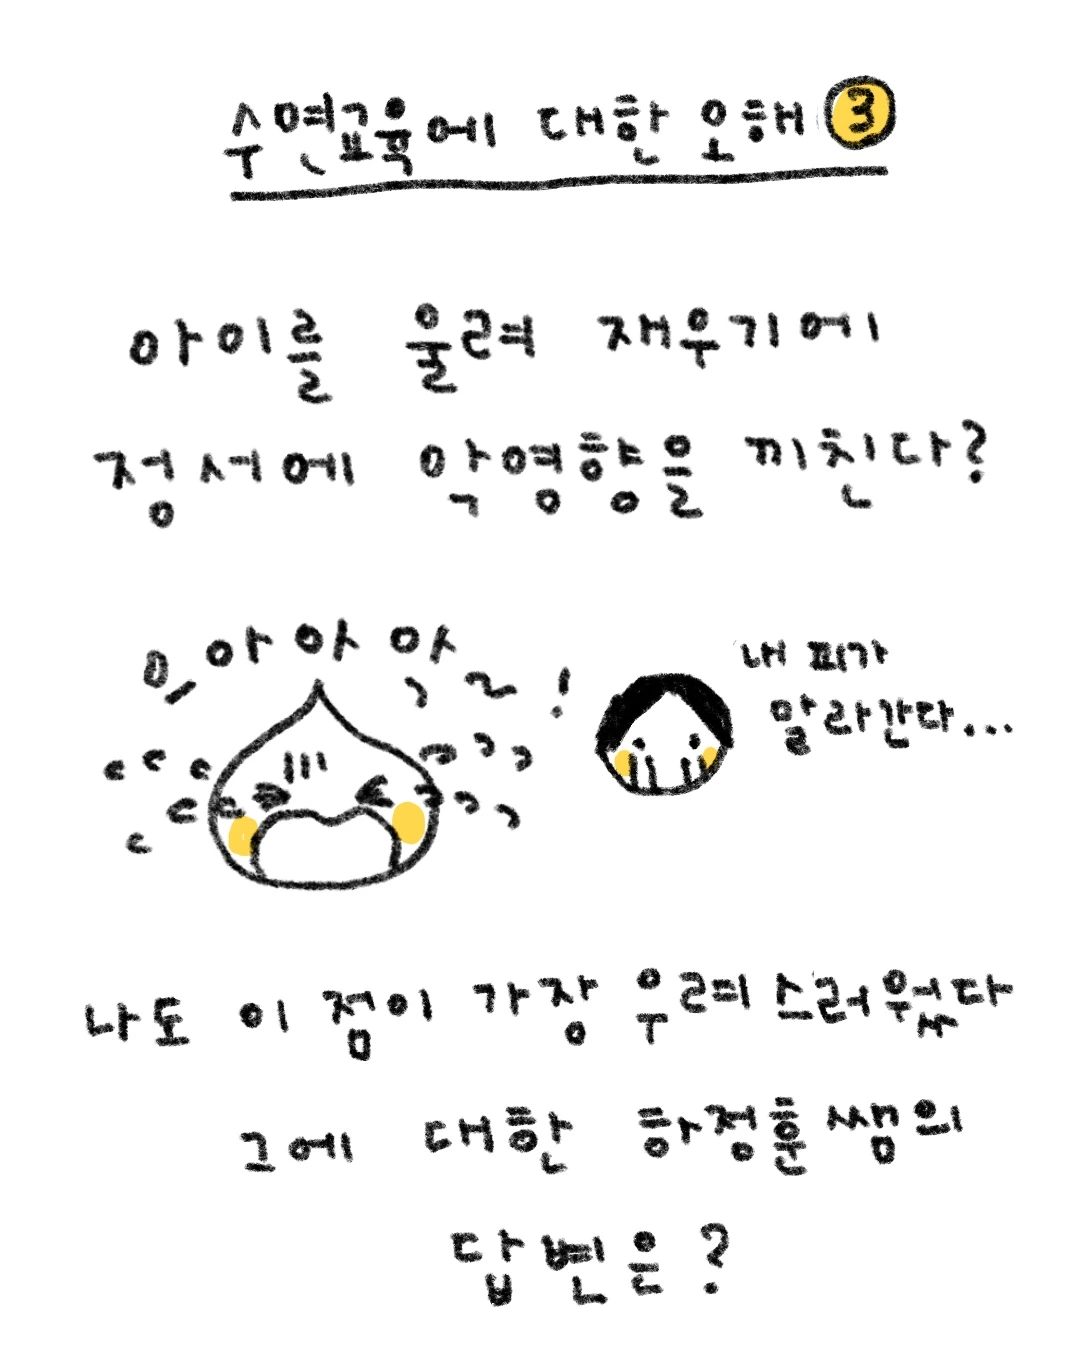 수면교육에 대한 오해 3
아이를 울려 재우기에
정서에 악영향을 끼친다?
으아아악~!
내 피가
말라간다...
나도 이 점이 가장 우려스러웠다
그에 대한 하정훈쌤의
답변은?